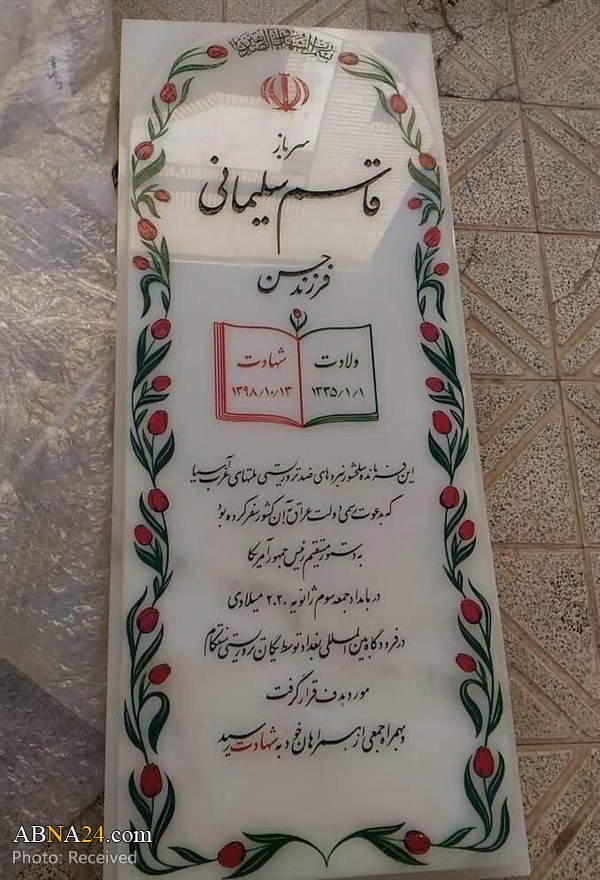 سرباز
قاسم سلیمانی
فرزند حسن
ولادت
۱۳۳۵/۱/۱
شهادت
۱۳۹۸/۱۰/۱۳
این فرمانده سلحشور نبردهای ضد تروریستی ملتهای غرب آسیا
که بدعوت رسمی دولت عراق به آن کشور سفر کرده بود
به دستور مستقیم رئیس جمهور آمریکا
در بامداد جمعه سوم ژانویه ۲۰۲۰ میلادی
در فرودگاه بین المللی بغداد توسط یگان تروریستی سنتکام
مورد هدف قرار گرفت
و بهمراه جمعی از همراهان خود به شهادت رسید
ABNA24.com
Photo: Received